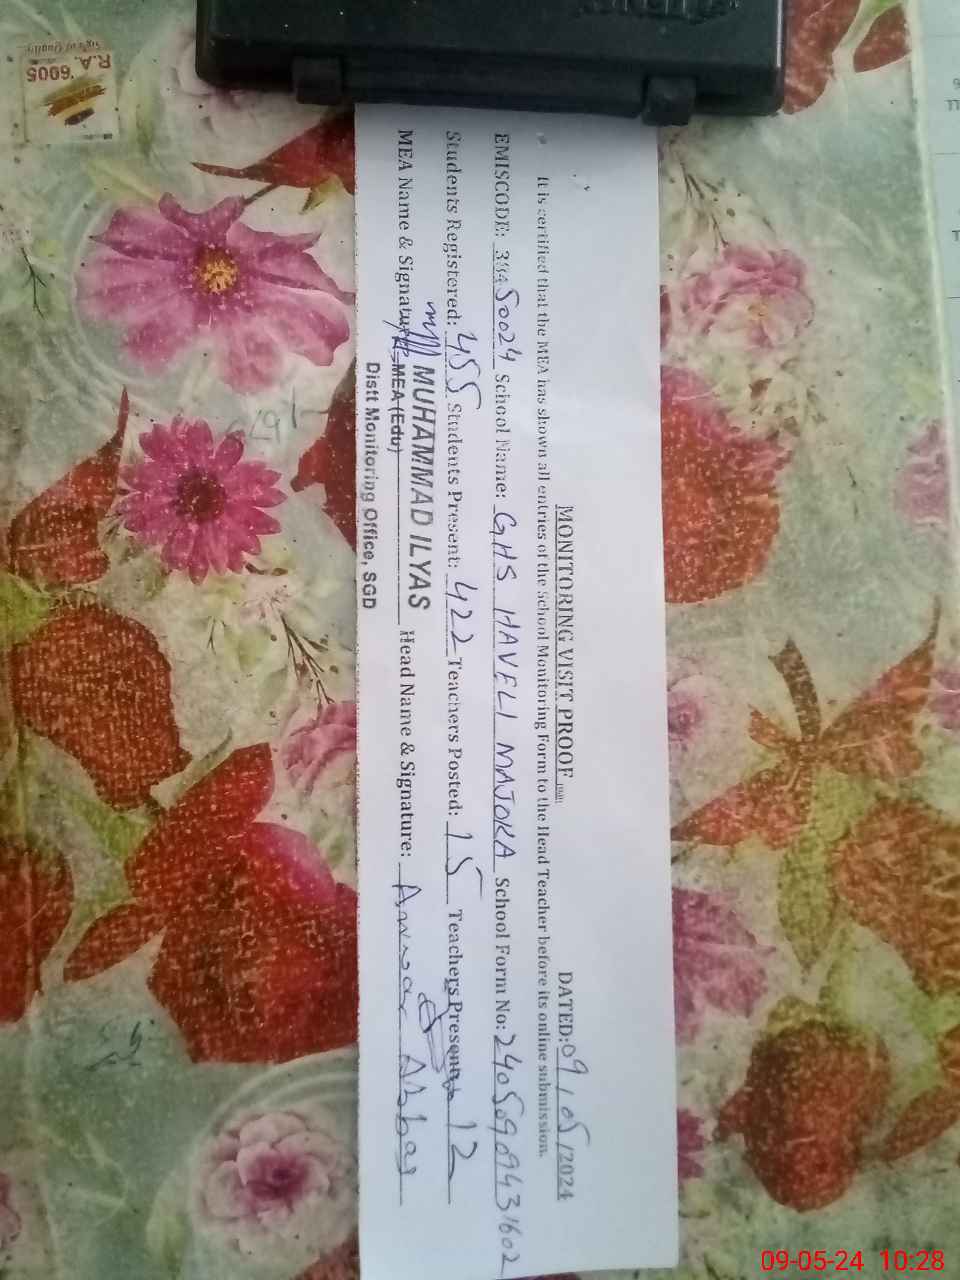 MONITORING VISIT PROOF DATED: 09/05/2024
It is certified that the MEA has shown all entries of the School Monitoring Form to the Head Teacher before its online submission.
EMISCODE: 38450024 School Name: GHS HAVELI MAJOKA School Form No: 24050909431602
Students Registered: 455 Students Present: 422 Teachers Posted: 15 Teachers Present: 12
MEA Name & Signature: MUHAMMAD ILYAS Head Name & Signature: Anwar Abbas
MEA (Edu)
Distt Monitoring Office, SGD
Sign of Quality
R.A. 6005
09-05-24 10:28